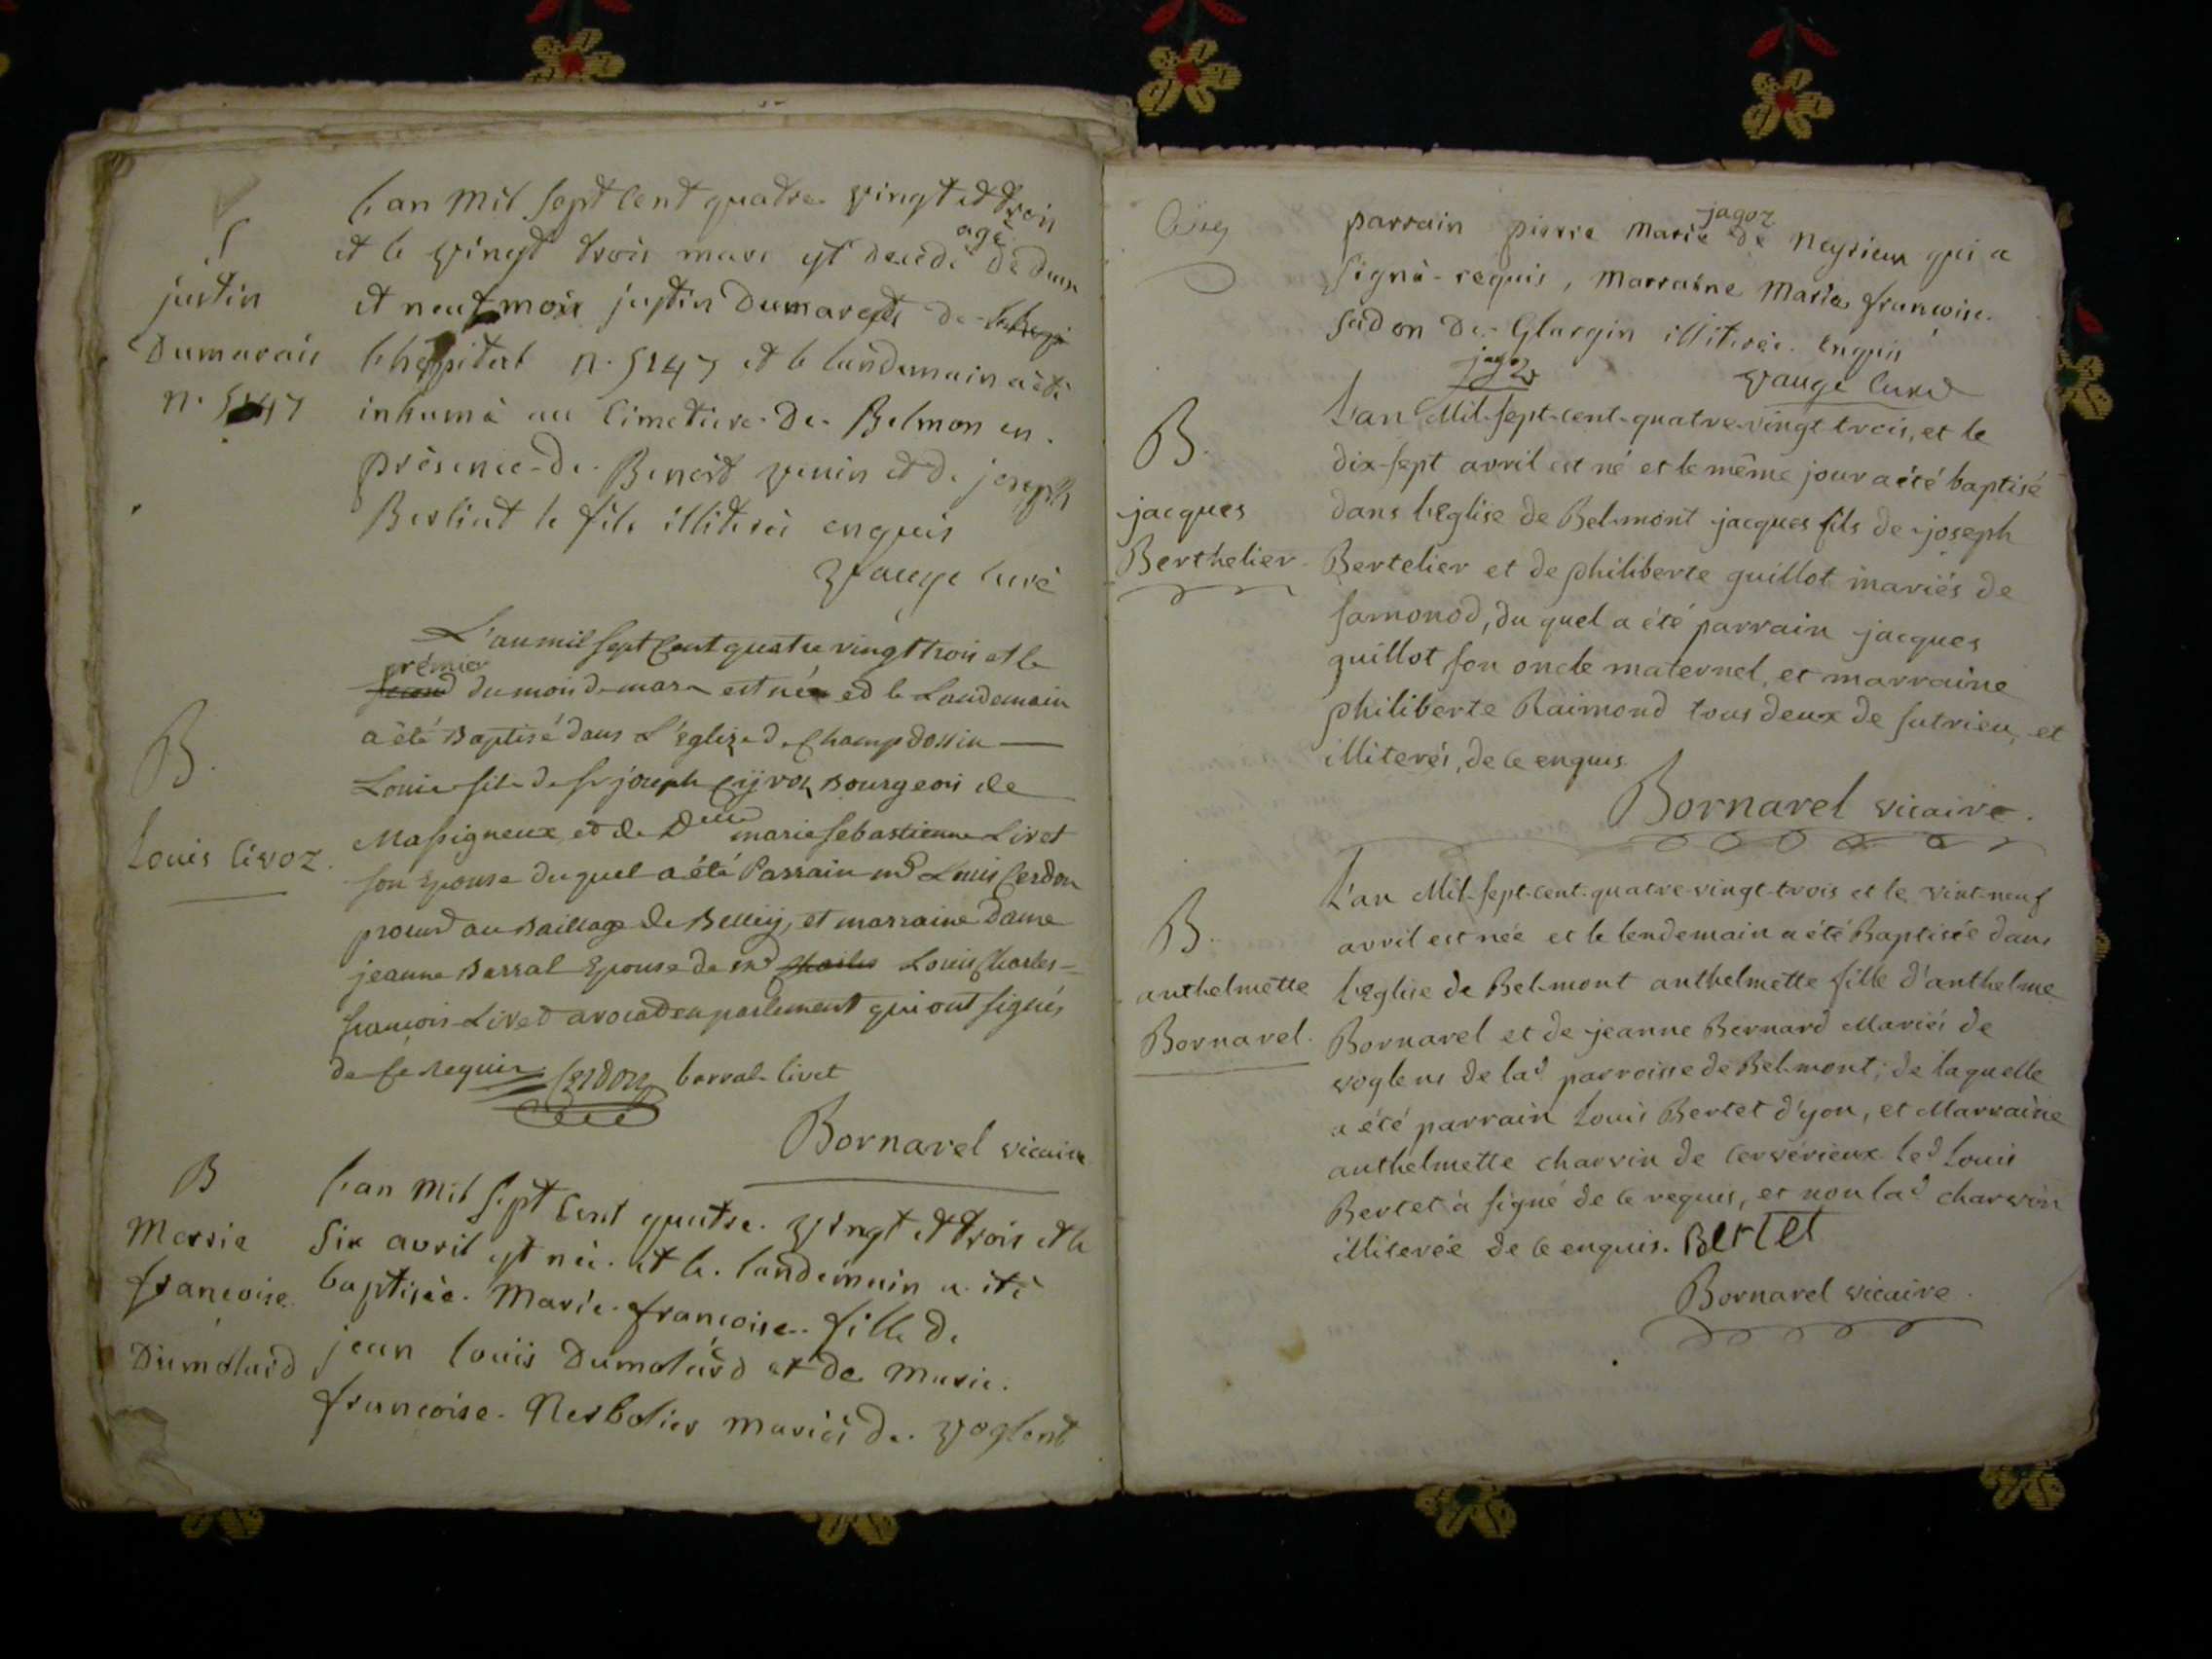 S
justin
Dumarais
n. 5147
L'an mil sept cent quatre vingt et trois
et le vingt trois mars est décédé agé de deux
et neuf mois justin Dumarest de
l'hopital n. 5147 et le landemain a été
inhumé au cimetiere de Belmon en
présence de Benoit venin et de joseph
Berliet le fils illiterés enquis
vauge curé
B.
Louis civoz.
L'an mil sept cent quatre vingt trois et le
prémier second du mois de mars est né et le Landemain
a été Baptisé dans L'église de Champdossin
Louis fils de sr joseph Civoz Bourgeois de
Massigneux et de Delle marie sebastienne Livet
son Epouse duquel a été Parrain md Louis Cerdon
procurd au Baillage de Belley, et marraine Dame
jeanne Barral Epouse de md Charles Louis Charles =
francois Livet avocad en parlement qui ont signés
de ce requis Cerdon barral livet
Bornarel vicaire
B
Marie
francoise
Dumolard
L'an mil sept cent quatre vingt et trois et le
six avril est née et le landemain a été
baptisée Marie francoise fille de
jean louis Dumolard et de Marie
francoise Nerbolier mariés de voglent
cinq
parrain pierre Marie jagoz de Neyrieux qui a
signé requis, Marraine Marie francoise
de Glargin illiterée enquis
jagoz vauge curé
B.
jacques
Berthelier
L'an Mil-sept-cent-quatre-vingt trois, et le
dix-sept avril est né et le même jour a été baptisé
dans l'Eglise de Bel-mont jacques fils de joseph
Bertelier et de philiberte guillot mariés de
samonod, du quel a été parrain jacques
guillot son oncle maternel, et marraine
philiberte Raimond tous deux de sutrieu, et
illiterés, de ce enquis
Bornarel vicaire.
B.
anthelmette
Bornarel.
L'an Mil-sept-cent-quatre-vingt-trois et le vint-neuf
avril est née et le lendemain a été Baptisée dans
l'Eglise de Bel-mont anthelmette fille d'anthelme
Bornarel et de jeanne Bernard Mariés de
voglens de lad parroisse de Bel-mont; de laquelle
a été parrain Louis Bertet d'yon, et Marraine
anthelmette charvin de cerverieux led Louis
Bertet à signé de ce requis, et non lad charvin
illiterée de ce enquis. Bertet
Bornarel vicaire.